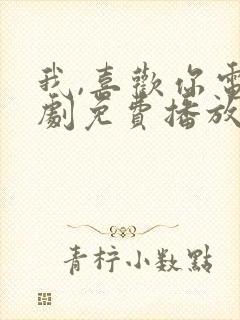 我,喜歡你電
劇免費播放
青柠小数點